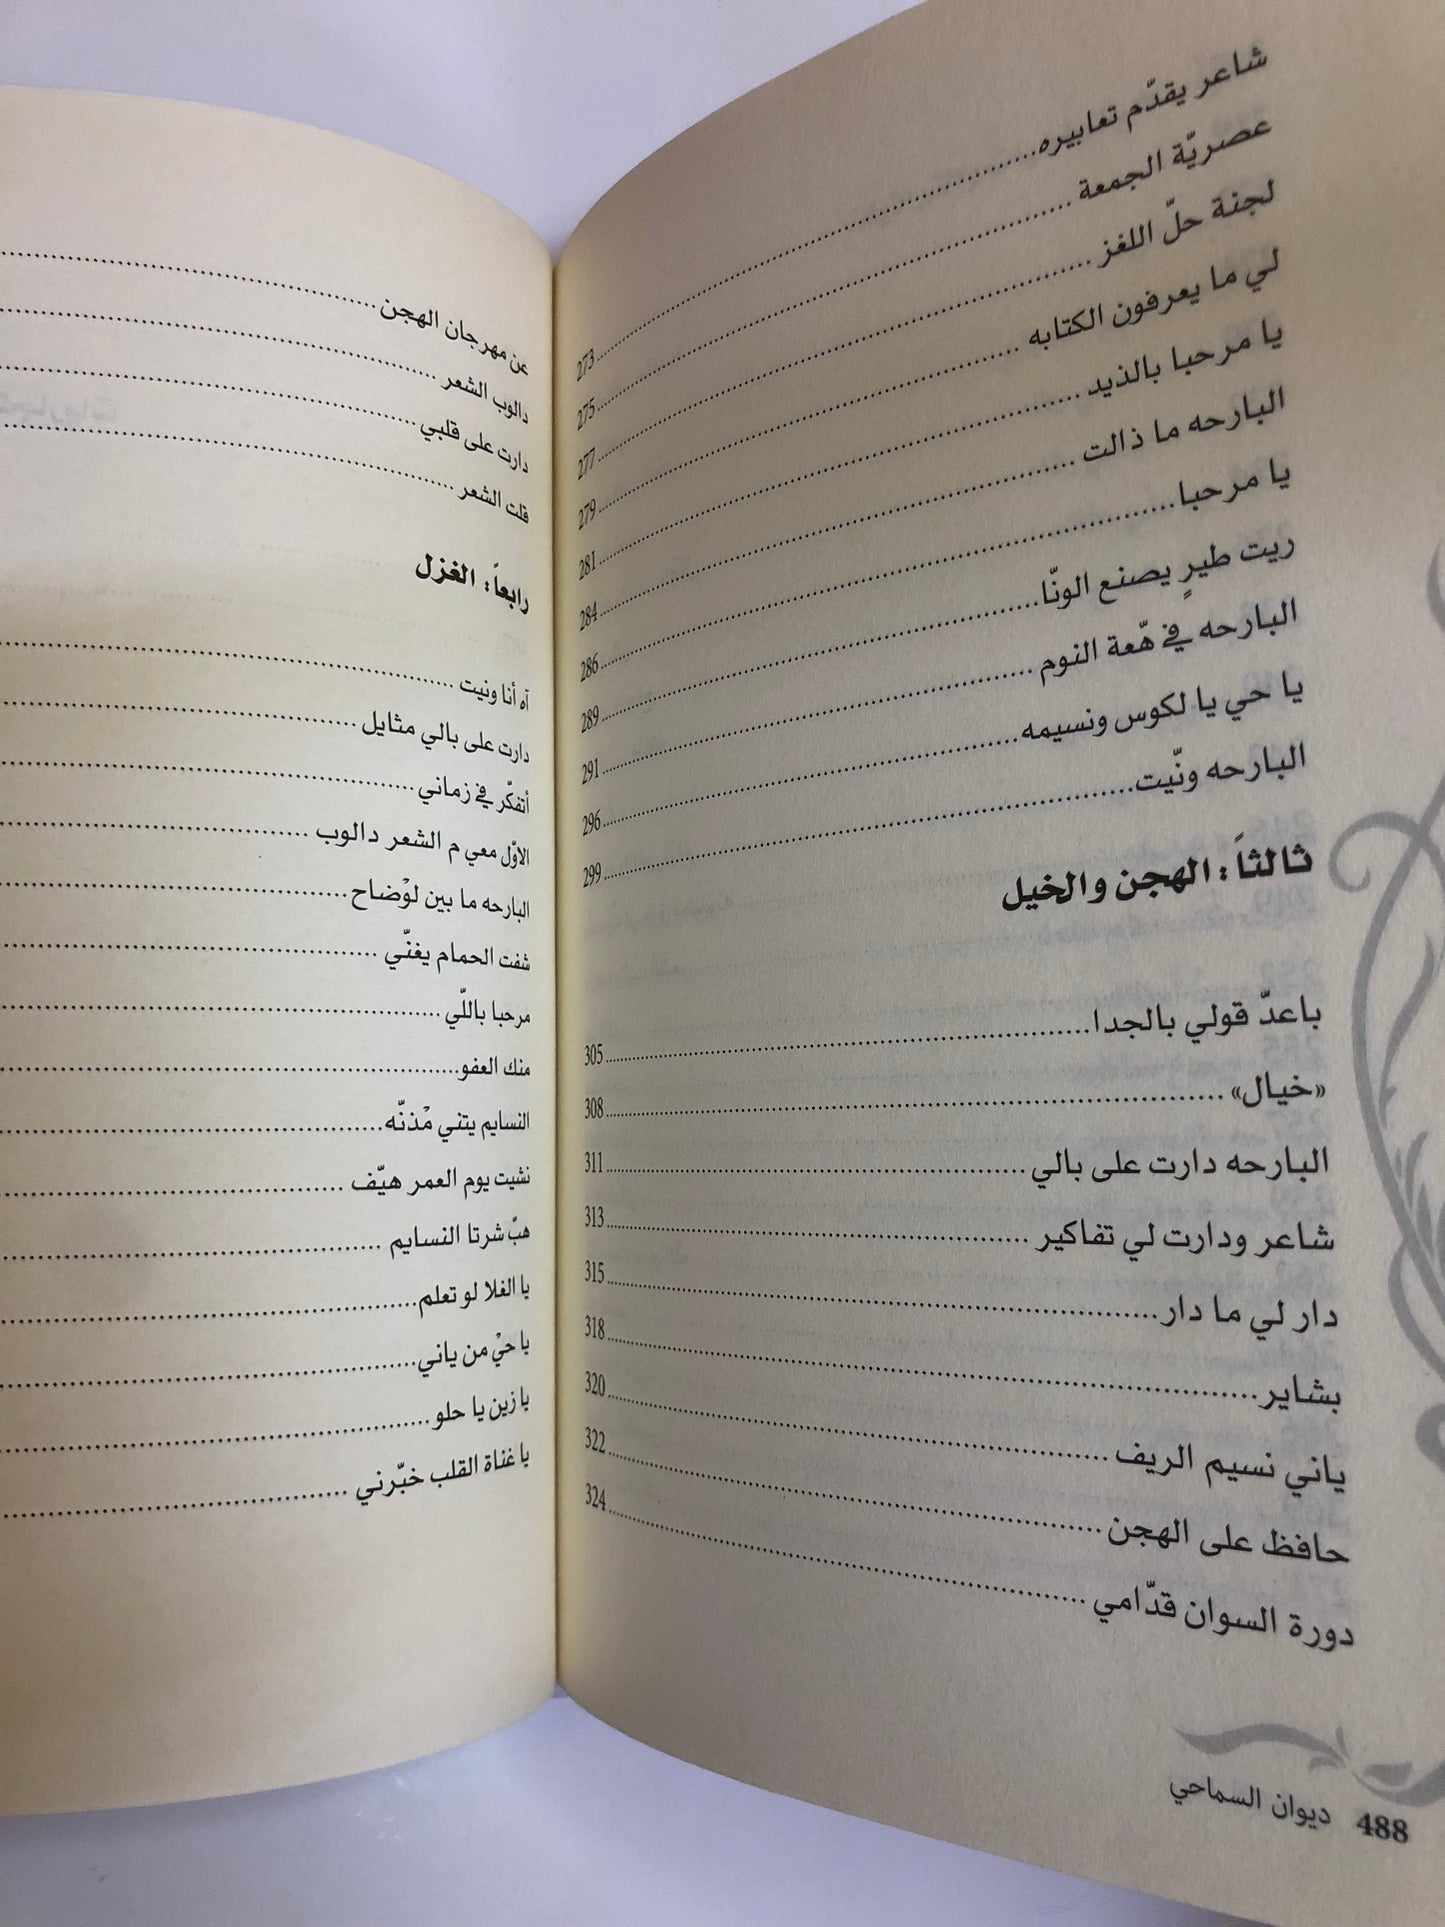 شاعر يقدّم تعابيره 273
عصريّة الجمعة 275
لجنة حلّ اللغز 277
لي ما يعرفون الكتابه 279
يا مرحبا بالذيد 281
البارحه ما ذالت 284
يا مرحبا 286
ريت طيرٍ يصنع الونّا 289
البارحه في هّعة النوم 291
يا حي يا لكوس ونسيمه 296
البارحه ونّيت 299
ثالثاً: الهجن والخيل
باعدّ قولي بالجدا 305
«خيال» 308
البارحه دارت على بالي 311
شاعر ودارت لي تفاكير 313
دار لي ما دار 315
بشاير 318
ياني نسيم الريف 320
حافظ على الهجن 322
دورة السوان قدّامي 324
488 ديوان السماحي
عن مهرجان الهجن
دالوب الشعر
دارت على قلبي
قلت الشعر
رابعاً: الغزل
آه أنا ونيت
دارت على بالي مثايل
أتفكّر في زماني
الاوّل معي م الشعر دالوب
البارحه ما بين لوْضاح
شفت الحمام يغنّي
مرحبا باللّي
منك العفو
النسايم يتني مْذنّه
نشيت يوم العمر هيّف
هبّ شرتا النسايم
يا الفلا لو تعلم
يا حيْ من ياني
يا زين يا حلو
يا غناة القلب خبّرني